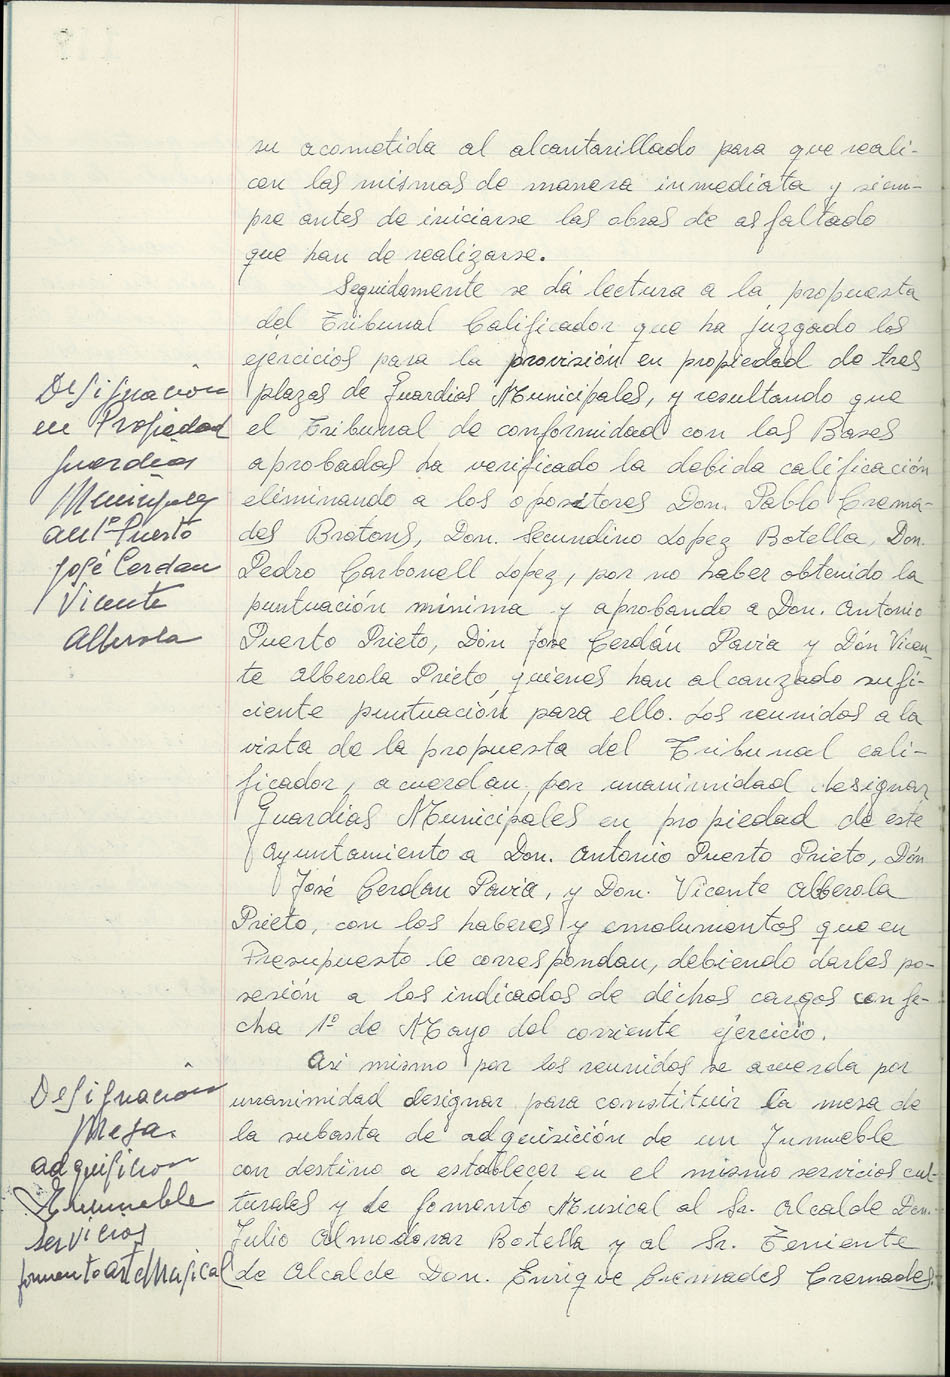 su acometida al alcantarillado para que reali-
cen las mismas de manera inmediata y siem-
pre antes de iniciarse las obras de asfaltado
que han de realizarse.
Seguidamente se dá lectura a la propuesta
del Tribunal Calificador que ha juzgado los
ejercicios para la provisión en propiedad de tres
plazas de Guardias Municipales, y resultando que
el Tribunal de conformidad con las Bases
aprobadas ha verificado la debida calificación
eliminando a los opositores Don. Pablo Crema-
des Brotons, Don. Secundino Lopez Botella, Don.
Pedro Carbonell Lopez, por no haber obtenido la
puntuación minima y aprobando a Don. Antonio
Puerto Prieto, Dón Jose Cerdán Pavia y Dón Vicen-
te Alberola Prieto, quienes han alcanzado sufi-
ciente puntuación para ello. Los reunidos a la
vista de la propuesta del Tribunal cali-
ficador, acuerdan por unanimidad designar
Guardias Municipales en propiedad de este
Ayuntamiento a Don. Antonio Puerto Prieto, Dón
José Cerdan Pavia, y Don. Vicente Alberola
Prieto, con los haberes y emolumentos que en
Presupuesto le correspondan, debiendo darles po-
sesión a los indicados de dichos cargos con fe-
cha 1º de Mayo del corriente ejercicio.
Asi mismo por los reunidos se acuerda por
unanimidad designar para constituir la mesa de
la subasta de adquisición de un Inmueble
con destino a establecer en el mismo servicios cul-
turales y de fomento Musical al Sr. Alcalde Don.
Julio Almodovar Botella y al Sr. Teniente
de Alcalde Don. Enrique Cremades Cremades.
Designacion
en Propiedad
guardias
Municipales
Antº Puerto
José Cerdan
Vicente
Alberola
Designación
Mesa.
adquisicion
Inmueble
servicios
fomento arte Musical